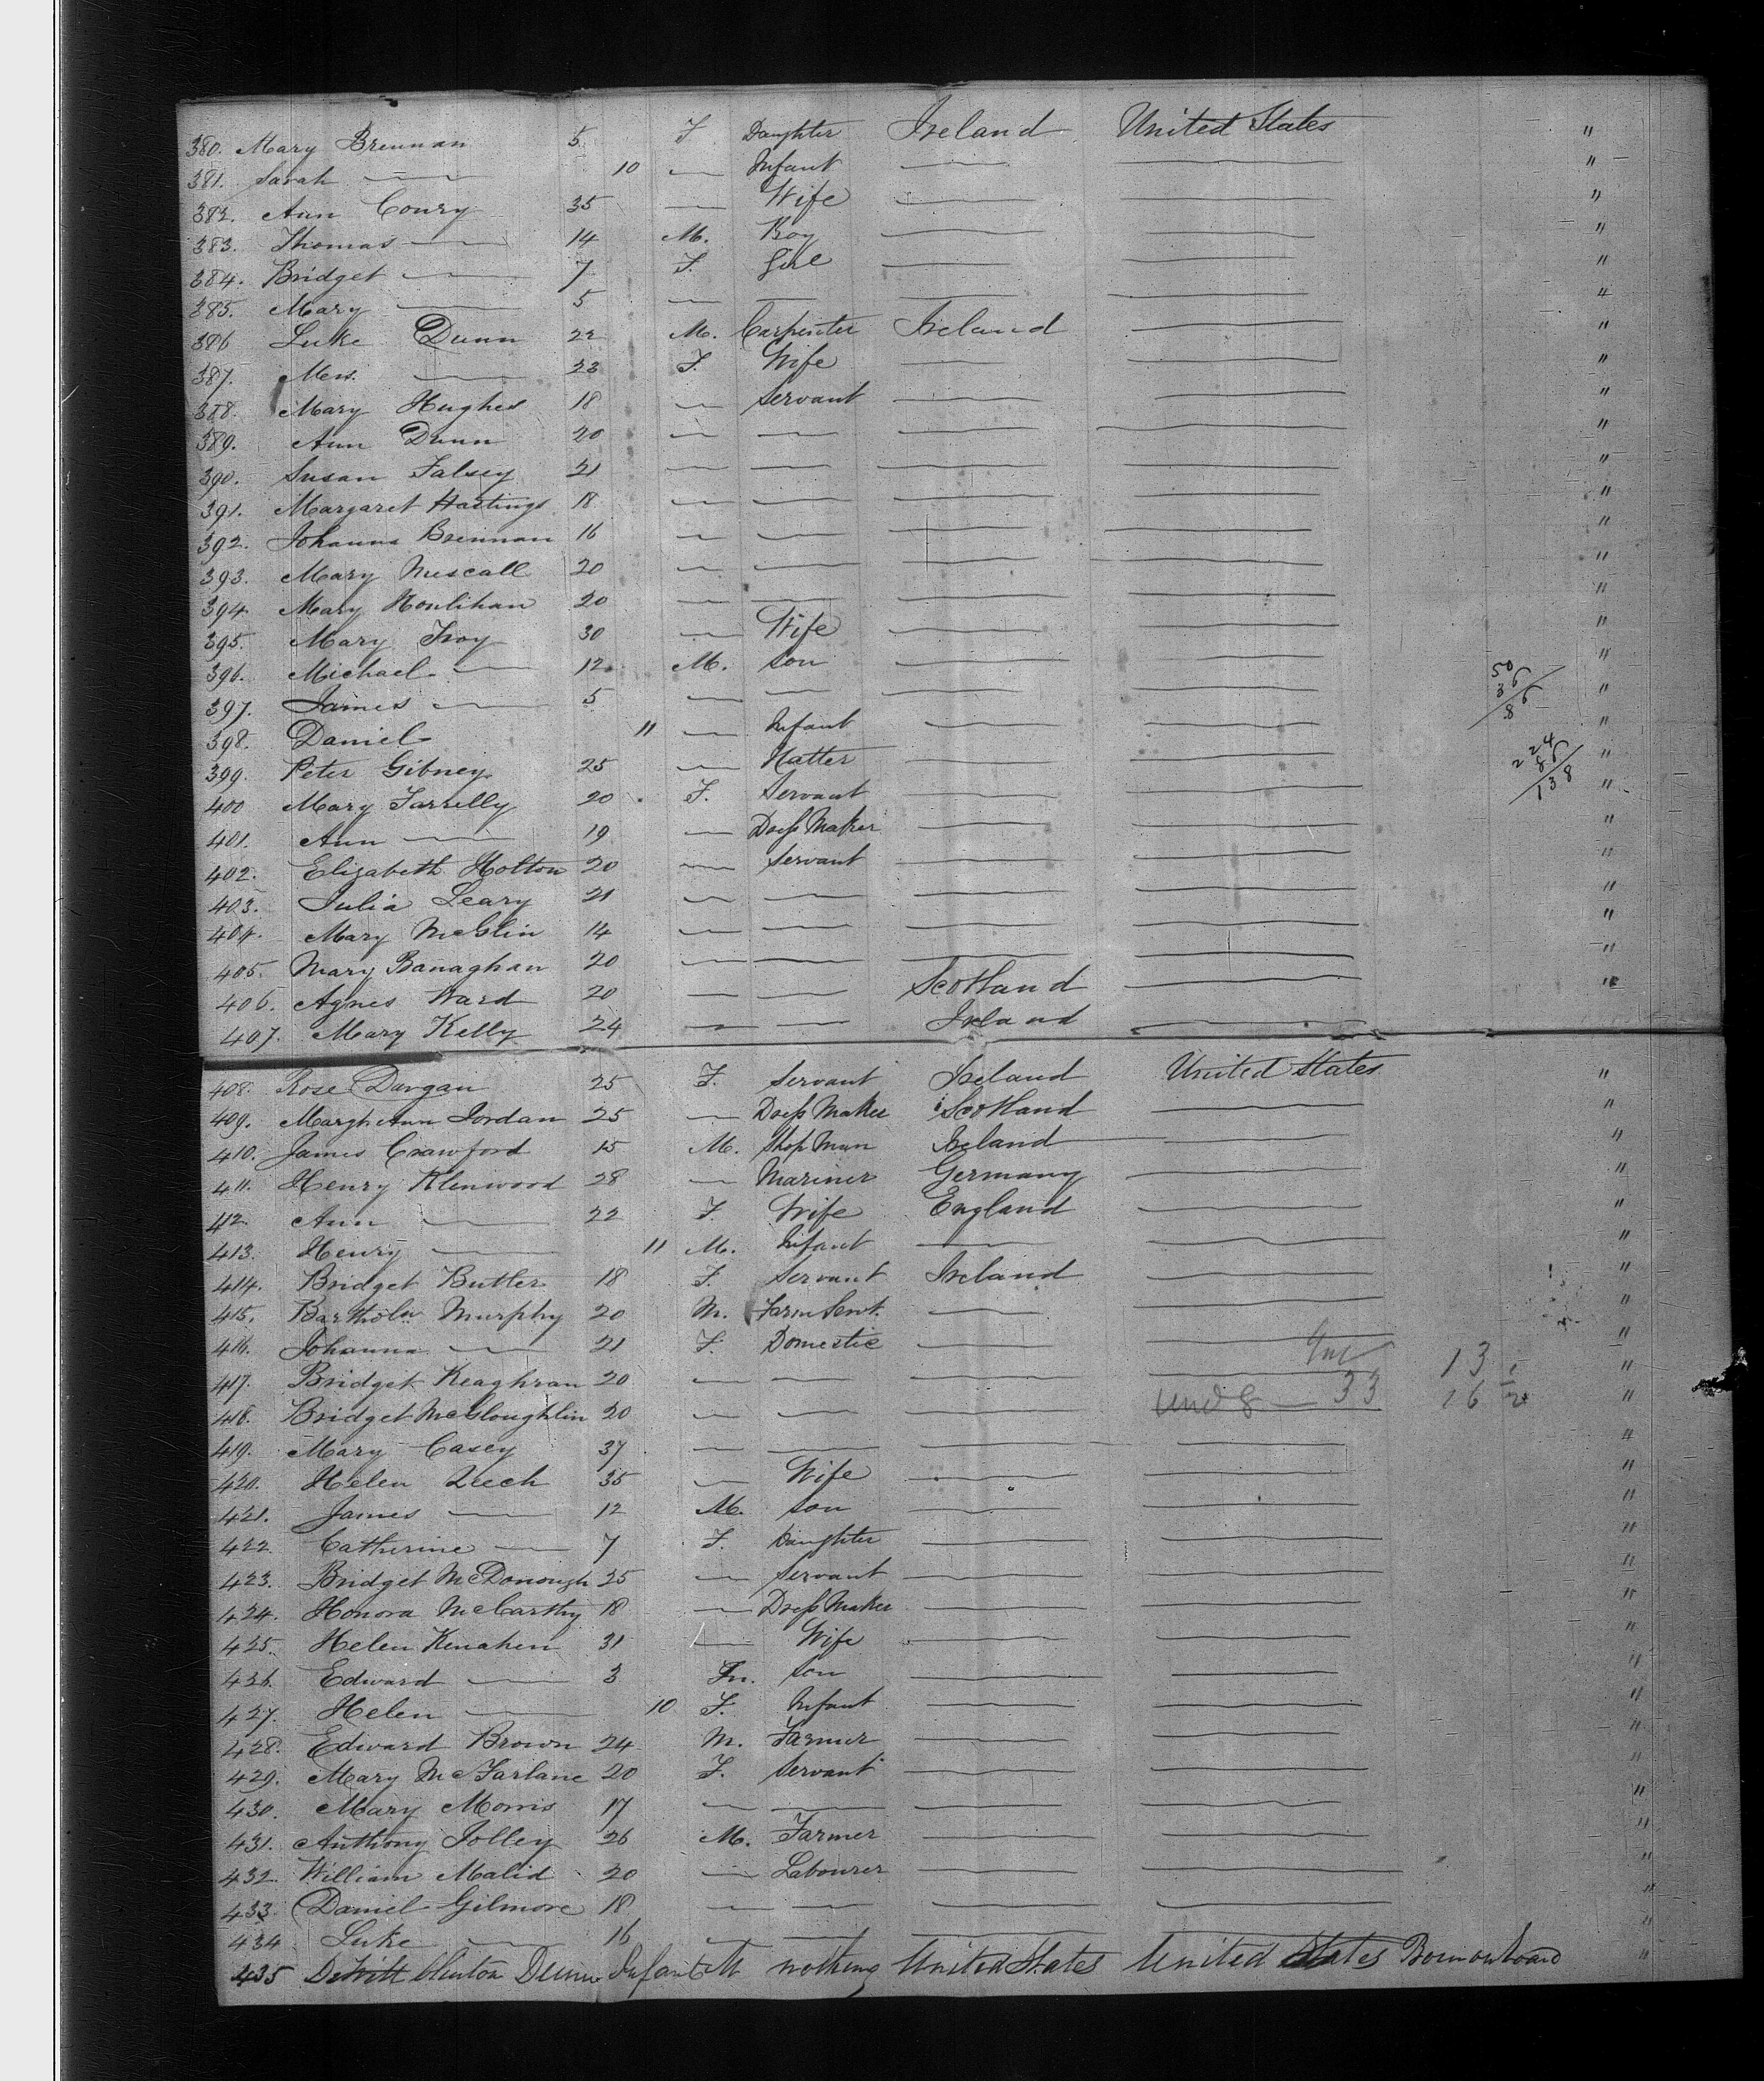 380. Mary Brennan 5 F Daughter Ireland United States "
381. Sarah — 10 — Infant — — "
382. Ann Coury 35 — Wife — — "
383. Thomas — 14 M. Boy — — "
384. Bridget — 7 F. Girl — — "
385. Mary — 5 — — — — "
386 Luke Dunn 22 M. Carpenter Ireland — "
387. Mrs. — 23 F. Wife — — "
388. Mary Hughes 18 — Servant — — "
389. Ann Dunn 20 — — — — "
390. Susan Falsey 21 — — — — "
391. Margaret Hastings 18 — — — — "
392. Johanna Brennan 16 — — — — "
393. Mary 20 — — — — "
394. Mary Houlihan 20 — — — — "
395. Mary Troy 30 — Wife — — "
396. Michael — 12 M. Son — — "
397. James — 5 — — — — "
398. Daniel 11 — Infant — — "
399. Peter Gibney 25 — Hatter — — "
400 Mary Farrelly 20 F. Servant — — "
401. Ann — 19 — Dress Maker — — "
402. Elizabeth Holton 20 — Servant — — "
403. Julia Leary 21 — — — — "
404. Mary McGlin 14 — — — — "
405. Mary Banaghan 20 — — — — "
406. Agnes Ward 20 — — Scotland — "
407. Mary Kelly 24 — — Ireland —
408. Rose Dargan 25 F. Servant Ireland United States "
409. Margt Ann Jordan 25 — Dress Maker Scotland — "
410. James Crawford 15 M. Shop Man Ireland — "
411. Henry Klenwood 28 — Mariner Germany — "
412. Ann — 22 F. Wife England — "
413. Henry — 11 M. Infant — — "
414. Bridget Butler 18 F. Servant Ireland — "
415. Bartholw Murphy 20 M. Farm Servt. — — "
416. Johanna — 21 F. Domestic — — "
417. Bridget Keaghran 20 — — — — 13 "
418. Bridget McGloughlin 20 — — — und 8 — 33 16 "
419. Mary Casey 37 — — — — "
420. Helen Leech 35 — Wife — — "
421. James — 12 M. Son — — "
422. Catherine — 7 F. Daughter — — "
423. Bridget McDonough 25 — Servant — — "
424. Honora McCarthy 18 — Dress Maker — — "
425. Helen Kenahen 31 — Wife — — "
426. Edward — 3 M. Son — — "
427. Helen — 10 F. Infant — — "
428. Edward Brown 24 M. Farmer — — "
429. Mary McFarlane 20 F. Servant — — "
430. Mary Morris 17 — — — — "
431. Anthony Jolley 26 M. Farmer — — "
432. William Malid 20 — Labourer — — "
433. Daniel Gilmore 18 — — — — "
434 Luke — 16 — — — — "
435 DeWitt Clinton Dunn Infant M nothing United States United States Born on board "